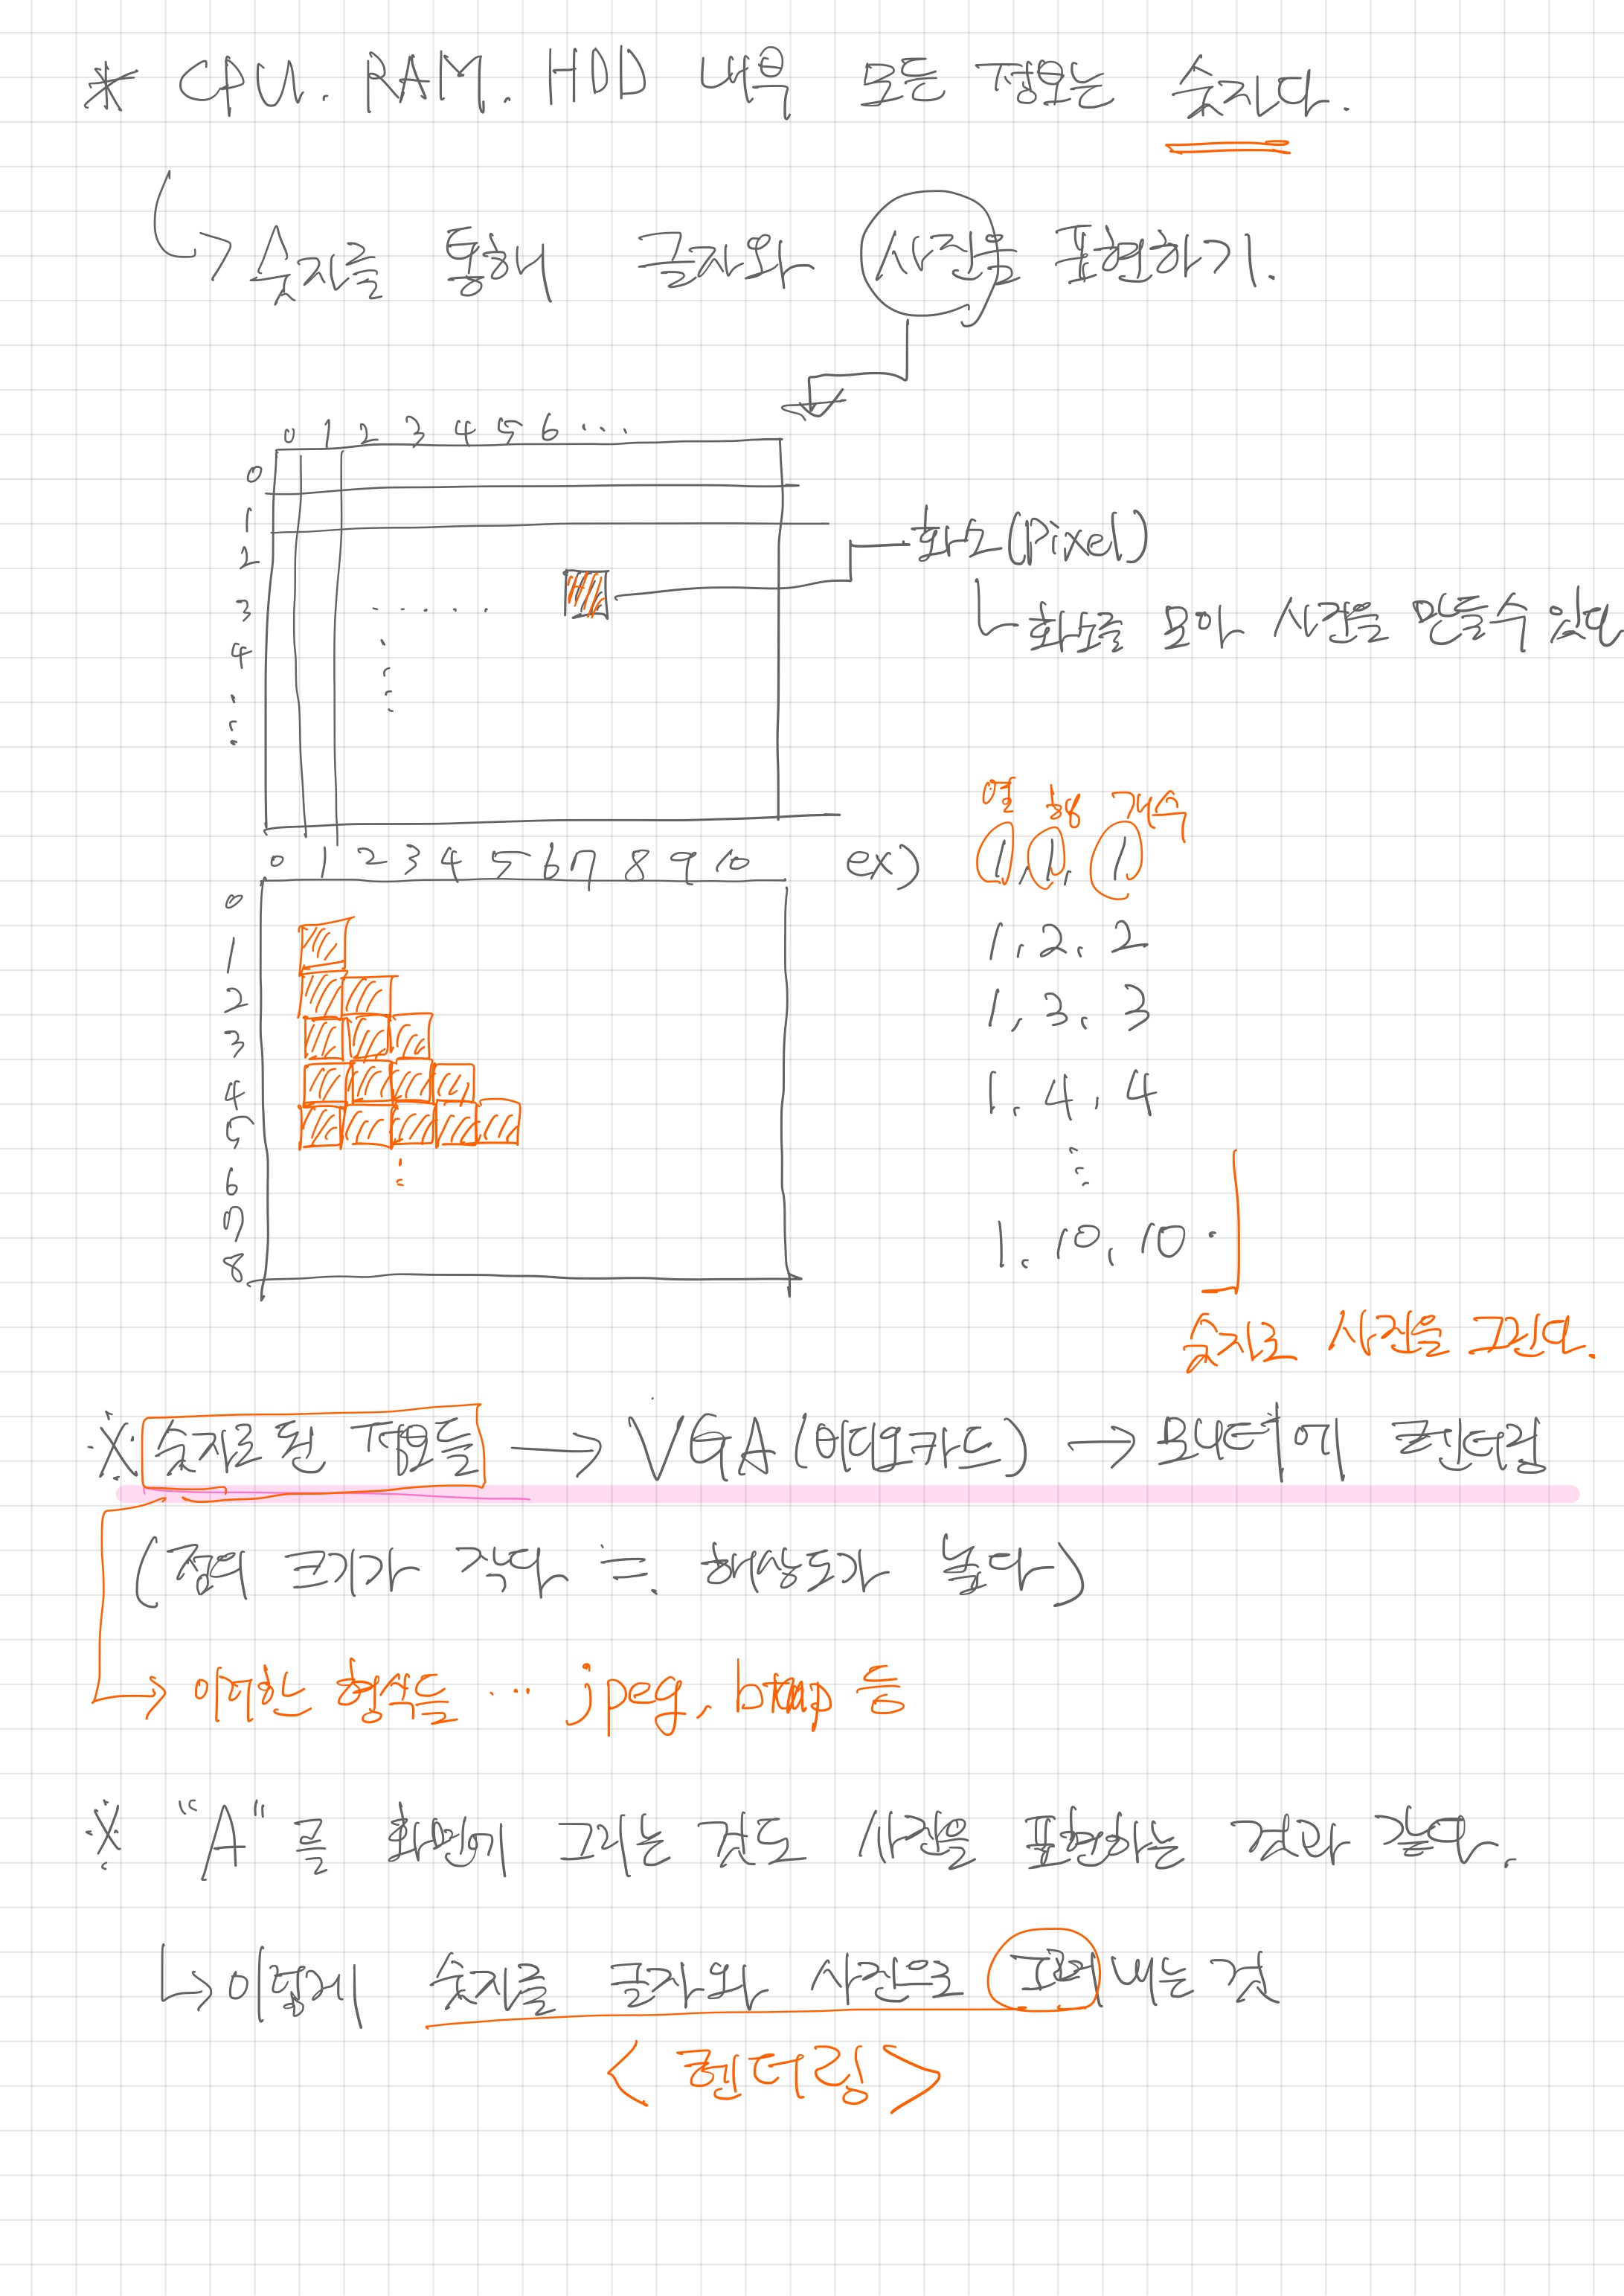 * CPU. RAM. HDD 내용 모든 정보는 숫자다.
↳ 숫자를 통해 글자와 사진을 표현하기.
0 1 2 3 4 5 6 ...
0
1
2
3
4
화소(Pixel)
화소를 모아 사진을 만들수 있다
열 행 개수
0 1 2 3 4 5 6 7 8 9 10
ex) 1, 1, 1
0
1
2
3
4
5
6
7
8
1, 2, 2
1, 3, 3
1, 4, 4
1, 10, 10.
숫자로 사진을 그린다.
※ 숫자로 된 정보들 → VGA(비디오카드) → 모니터에 렌더링
(점의 크기가 작다 ≒. 해상도가 높다)
→ 이러한 형식들 ... jpeg, bmp 등
※ "A"를 화면에 그리는 것도 사진을 표현하는 것과 같다.
↳ 이렇게 숫자를 글자와 사진으로 내는 것
<렌더링>